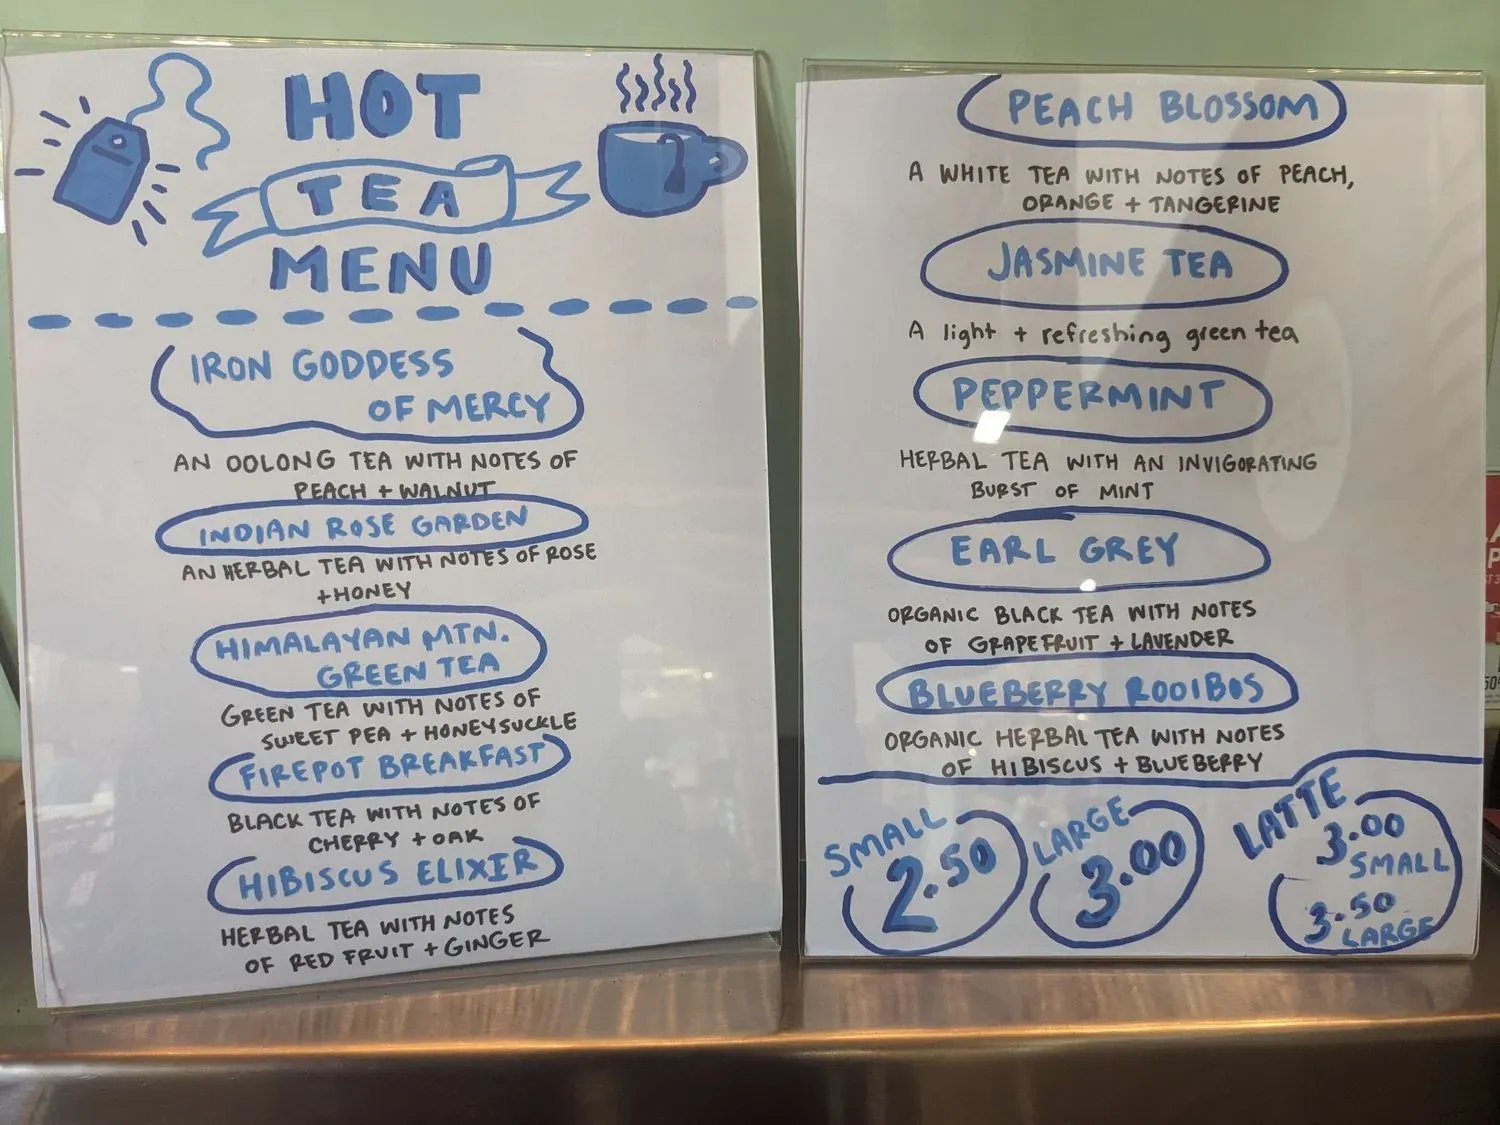 HOT
TEA
MENU
IRON GODDESS
OF MERCY
AN OOLONG TEA WITH NOTES OF
PEACH + WALNUT
INDIAN ROSE GARDEN
AN HERBAL TEA WITH NOTES OF ROSE
+HONEY
HIMALAYAN MTN.
GREEN TEA
GREEN TEA WITH NOTES OF
SWEET PEA + HONEYSUCKLE
FIREPOT BREAKFAST
BLACK TEA WITH NOTES OF
CHERRY + OAK
HIBISCUS ELIXER
HERBAL TEA WITH NOTES
OF RED FRUIT + GINGER
PEACH BLOSSOM
A WHITE TEA WITH NOTES OF PEACH,
ORANGE + TANGERINE
JASMINE TEA
A light + refreshing green tea
PEPPERMINT
HERBAL TEA WITH AN INVIGORATING
BURST OF MINT
EARL GREY
ORGANIC BLACK TEA WITH NOTES
OF GRAPEFRUIT + LAVENDER
BLUEBERRY ROOIBOS
ORGANIC HERBAL TEA WITH NOTES
OF HIBISCUS + BLUEBERRY
SMALL
2.50
LARGE
3.00
LATTE
3.00
SMALL
3.50
LARGE